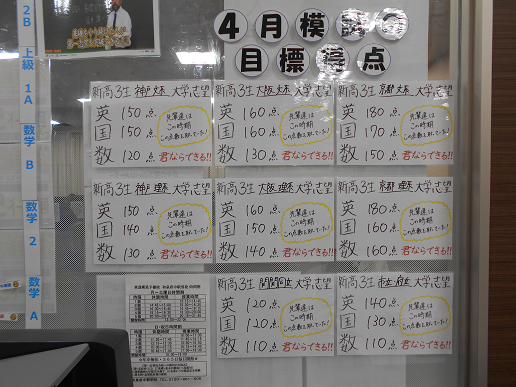 4月模試の
目標得点
2B
上級
1A
数学
B
数学
2
数学
A
新高3生 神戸文系 大学志望
英 150点
国 150点
数 120点
先輩達は
この時期
この点数を取ってた!
君ならできる!!
新高3生 大阪文系 大学志望
英 160点
国 160点
数 130点
先輩達は
この時期
この点数を取ってた!
君ならできる!!
新高3生 京都文系 大学志望
英 180点
国 170点
数 150点
先輩達は
この時期
この点数を取ってた!
君ならできる!!
新高3生 神戸理系 大学志望
英 150点
国 140点
数 130点
先輩達は
この時期
この点数を取ってた!
君ならできる!!
新高3生 大阪理系 大学志望
英 160点
国 150点
数 140点
先輩達は
この時期
この点数を取ってた!
君ならできる!!
新高3生 京都理系 大学志望
英 180点
国 160点
数 160点
先輩達は
この時期
この点数を取ってた!
君ならできる!!
新高3生 関関同立 大学志望
英 120点
国 120点
数 110点
先輩達は
この時期
この点数を取ってた!
君ならできる!!
新高3生 市立・府立 大学志望
英 140点
国 130点
数 110点
先輩達は
この時期
この点数を取ってた!
君ならできる!!